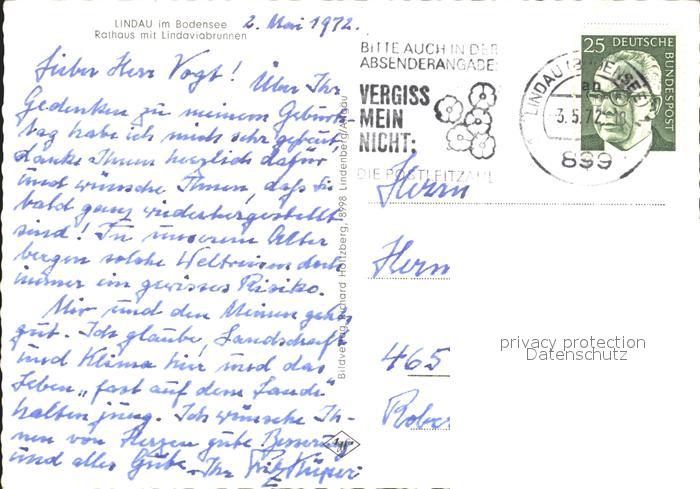 LINDAU im Bodensee
Rathaus mit Lindaviabrunnen
2. Mai 1972.
Lieber Herr Vogt! Über Ihr
Gedenken zu meinem Geburts-
tag habe ich mich sehr gefreut,
danke Ihnen herzlich dafür
und wünsche Ihnen, daß Sie
bald ganz wiederhergestellt
sind! In unserem Alter
bergen solche Weltreisen doch
immer ein gewisses Risiko.
Mir und den Meinen geht es
gut. Ich glaube, Landschaft
und Klima hier und das
Leben „fast auf dem Lande"
halten jung. Ich wünsche Ih-
nen von Herzen gute Besserung
und alles Gute. Ihr Fritz Küper
Bildverlag Richard Holtzberg, 8998 Lindenberg/Allgäu
BITTE AUCH IN DER
ABSENDERANGABE:
VERGISS
MEIN
NICHT:
DIE POSTLEITZAHL
LINDAU (BODENSEE)
an
3.5.72
899
25 DEUTSCHE
BUNDESPOST
Herrn
Herm
465
Rober
privacy protection
Datenschutz